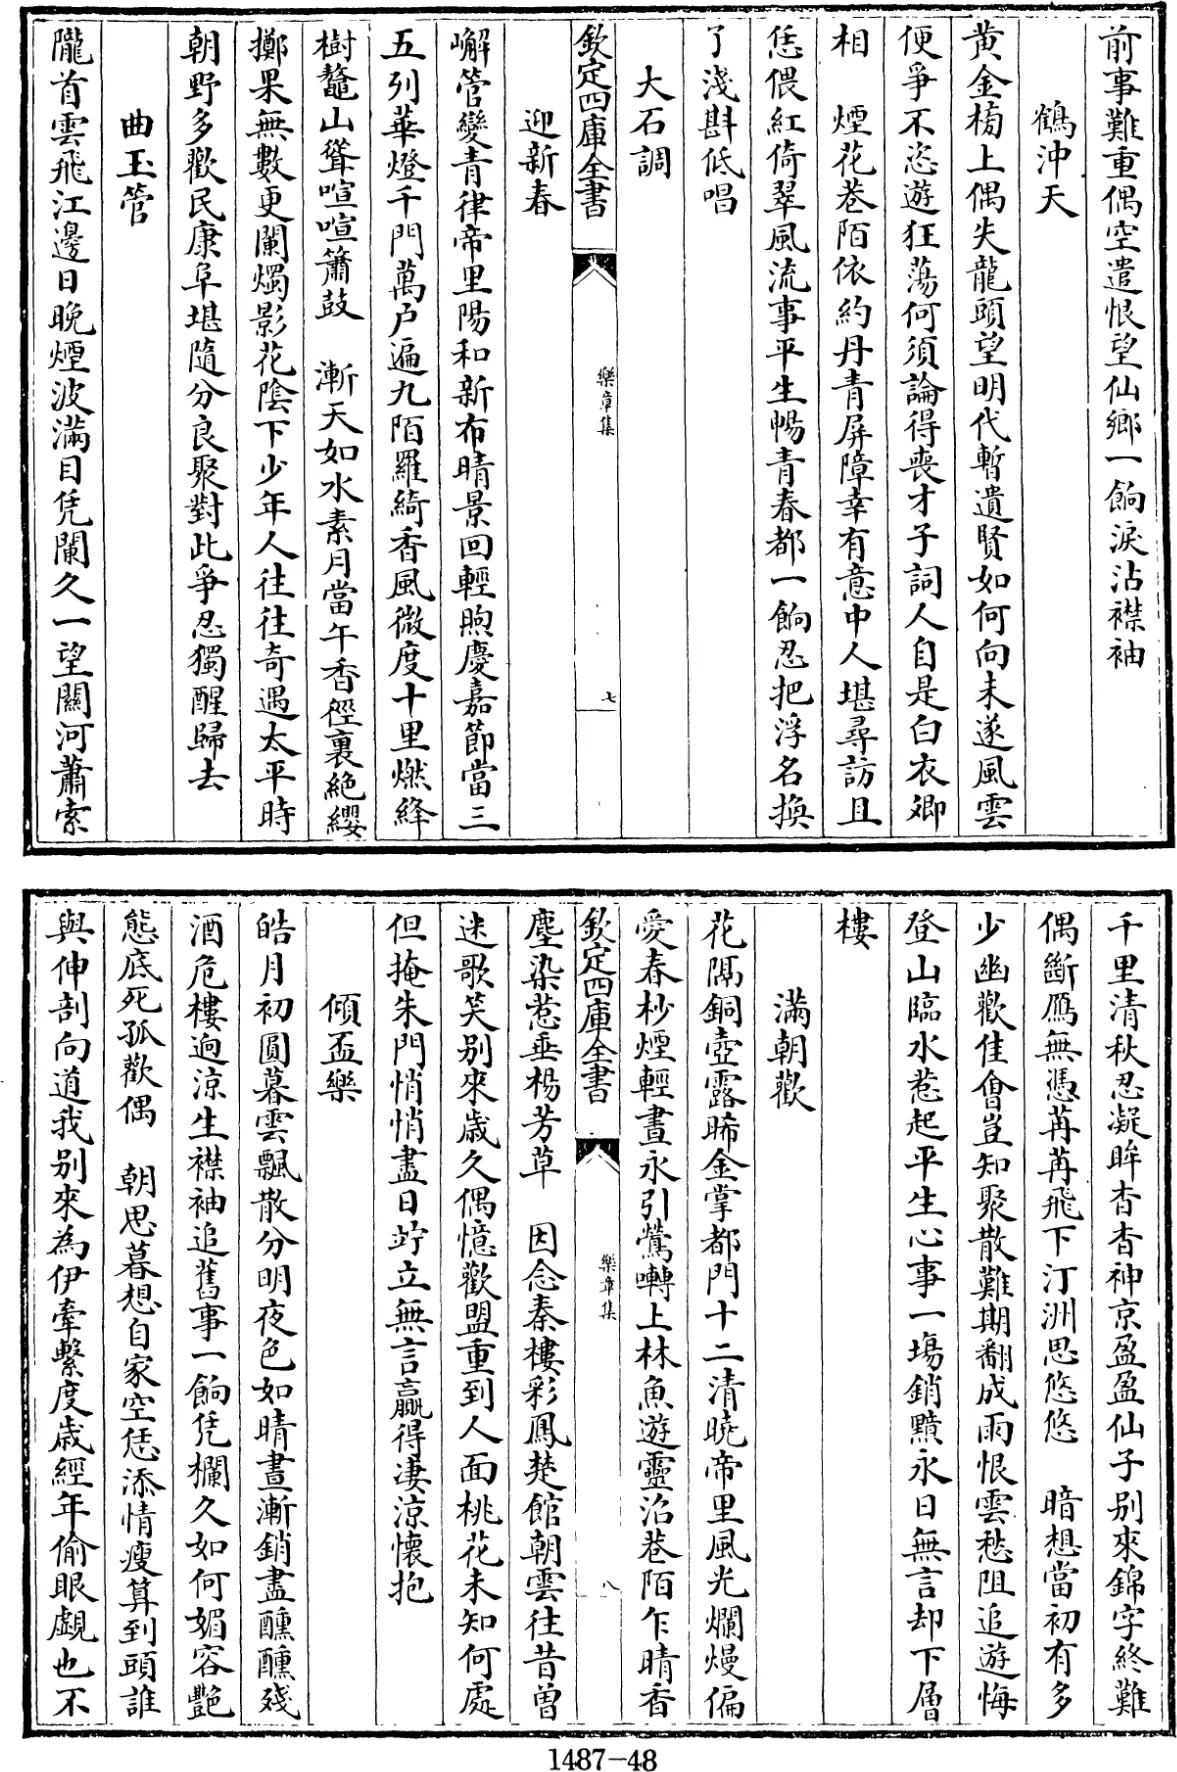 前事難重偶空遣恨望仙鄉一餉淚沾襟袖
鶴沖天
黄金榜上偶失龍頭望明代暫遺賢如何向未遂風雲
便爭不恣遊狂蕩何須論得喪才子詞人自是白衣卿
相　煙花巷陌依約丹青屏障幸有意中人堪尋訪且
恁偎紅倚翠風流事平生暢青春都一餉忍把浮名換
了淺斟低唱
大石調
欽定四庫全書
樂章集
七
迎新春
嶰管變青律帝里陽和新布晴景回輕煦慶嘉節當三
五列華燈千門萬户遍九陌羅綺香風微度十里燃絳
樹鼇山聳喧喧簫鼓　漸天如水素月當午香徑裏絶纓
擲果無數更闌燭影花陰下少年人往往奇遇太平時
朝野多歡民康阜堪隨分良聚對此爭忍獨醒歸去
曲玉管
隴首雲飛江邊日晚煙波滿目凭闌久一望關河蕭索
千里清秋忍凝眸杳杳神京盈盈仙子别來錦字終難
偶斷鴈無憑冉冉飛下汀洲思悠悠　暗想當初有多
少幽歡佳會豈知聚散難期翻成雨恨雲愁阻追遊悔
登山臨水惹起平生心事一場銷黯永日無言却下層
樓
滿朝歡
花隔銅壺露晞金掌都門十二清曉帝里風光爛熳偏
愛春杪煙輕晝永引鶯囀上林魚遊靈沼巷陌乍晴香
欽定四庫全書
樂章集
八
塵染惹垂楊芳草　因念秦樓彩鳳楚館朝雲往昔曽
迷歌笑别來歲久偶憶歡盟重到人面桃花未知何處
但掩朱門悄悄盡日竚立無言贏得凄涼懷抱
傾盃樂
皓月初圓暮雲飄散分明夜色如晴晝漸銷盡醺醺殘
酒危樓迥涼生襟袖追舊事一餉凭欄久如何媚容艷
態底死孤歡偶　朝思暮想自家空恁添情瘦算到頭誰
與伸剖向道我别來為伊牽繫度歲經年偷眼覷也不
1487-48